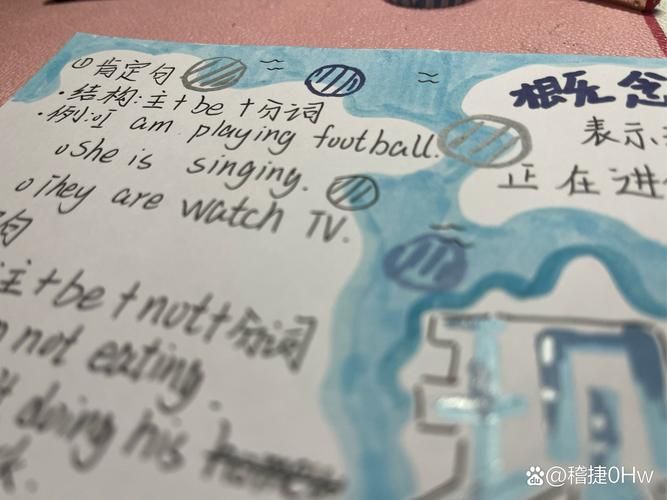 ① 肯定句
·结构:主+be+分词
·例:①I am playing football.
○She is singing.
○They are watch TV.
句
主+be+not+分词
not eating.
doing his
概念
表示
正在进
现
@稽捷0Hw